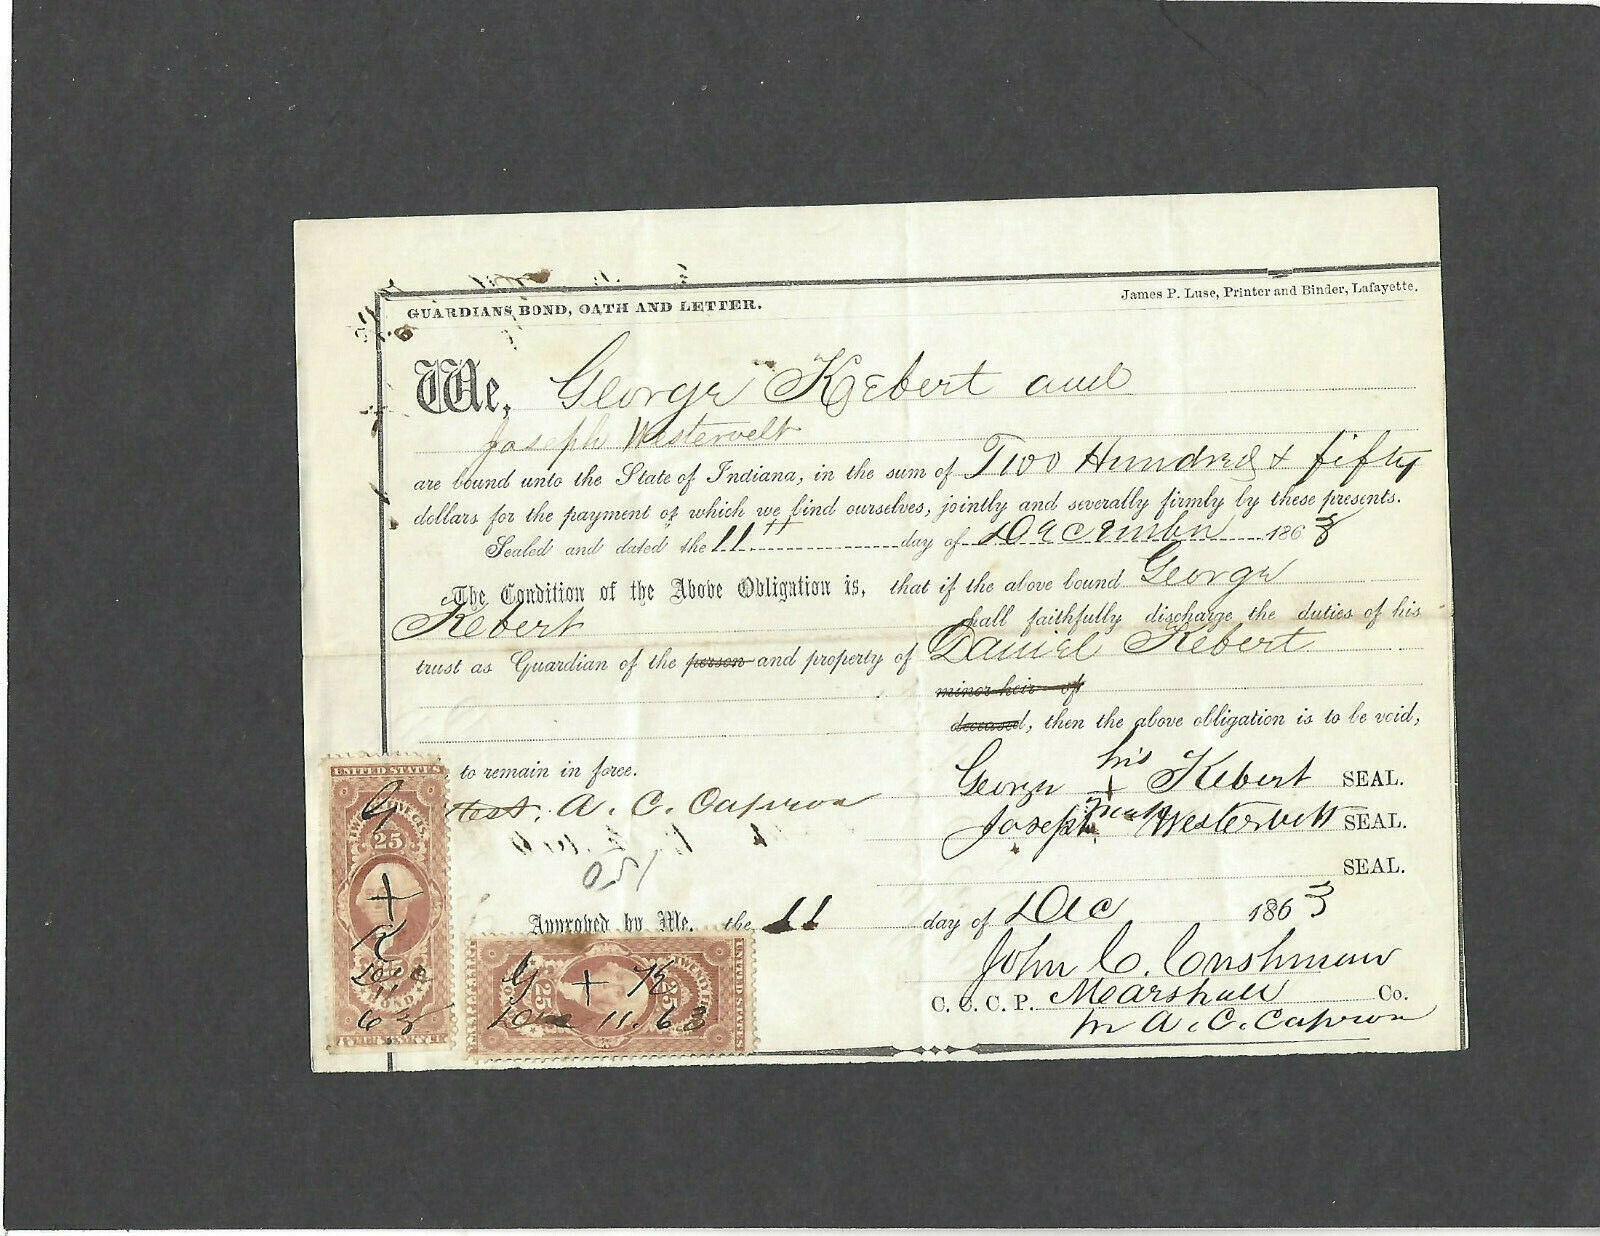 GUARDIANS BOND, OATH AND LETTER.
James P. Luse, Printer and Binder, Lafayette.
We, George Kebert and
Joseph Westervelt
are bound unto the State of Indiana, in the sum of Two Hundred & fifty
dollars for the payment of which we bind ourselves, jointly and severally firmly by these presents.
Sealed and dated the 11" day of December 1863
The Condition of the Above Obligation is, that if the above bound George
Kebert shall faithfully discharge the duties of his
trust as Guardian of the person and property of Daniel Kebert
minor heir of
deceased, then the above obligation is to be void,
to remain in force.
George his + mark Kebert SEAL.
test. A. C. Capron
Joseph Westervelt SEAL.
SEAL.
Approved by Me, the 11 day of Dec 1863
John C. Cushman
C. C. C. P. Marshall Co.
A. C. Capron
UNITED STATES
25
G + K
Dec
11
63
G + K
Dec 11. 63
25
25
UNITED STATES